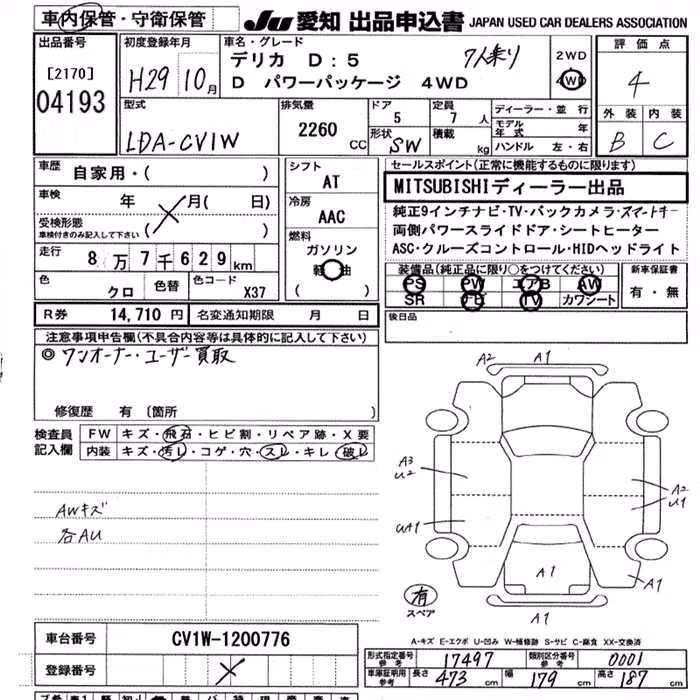 車内保管・守衛保管 JU 愛知 出品申込書 JAPAN USED CAR DEALERS ASSOCIATION
出品番号 [2170] 04193
初度登録年月 H29 10月
車名・グレード デリカ D:5 7人乗り
D パワーパッケージ 4WD
2WD 4WD
評価点 4
外装 B 内装 C
型式 LDA-CV1W
排気量 2260 CC
ドア 5 定員 7 人
形状 SW 積載 kg
ディーラー・並行
モデル年式 年
ハンドル 左・右
車歴 自家用・( )
車検 年 月( 日)
受検形態 車検付きのみ記入して下さい ( )
走行 8万7千629km
色 クロ 色替 色コード X37
シフト AT
冷房 AAC
燃料 ガソリン
軽油
( )
セールスポイント(正常に機能するものに限ります)
MITSUBISHIディーラー出品
純正9インチナビ・TV・バックカメラ・スマートキー
両側パワースライドドア・シートヒーター
ASC・クルーズコントロール・HIDヘッドライト
装備品(純正品に限り○をつけてください)
PS PW エアB AW
SR ナビ TV カワシート
新車保証書 有・無
R券 14,710円 名変通知期限 月 日
後日品
注意事項申告欄(不具合内容等は具体的に記入して下さい)
◎ワンオーナー・ユーザー買取
修復歴 有 〔箇所 〕
検査員記入欄 FW キズ・飛石・ヒビ割・リペア跡・X要
内装 キズ・汚レ・コゲ・穴・スレ・キレ・破レ
AWキズ
各AU
A2 A1
A3
U2
A2
U1
A1
A1
A1
有
スペア
A-キズ E-エクボ U-凹み W-補修跡 S-サビ C-腐食 XX-交換済
車台番号 CV1W-1200776
登録番号
形式指定番号 参考 17497 類別区分番号 参考 0001
車庫証明用 参考 長さ 473cm 幅 179cm 高さ 187cm